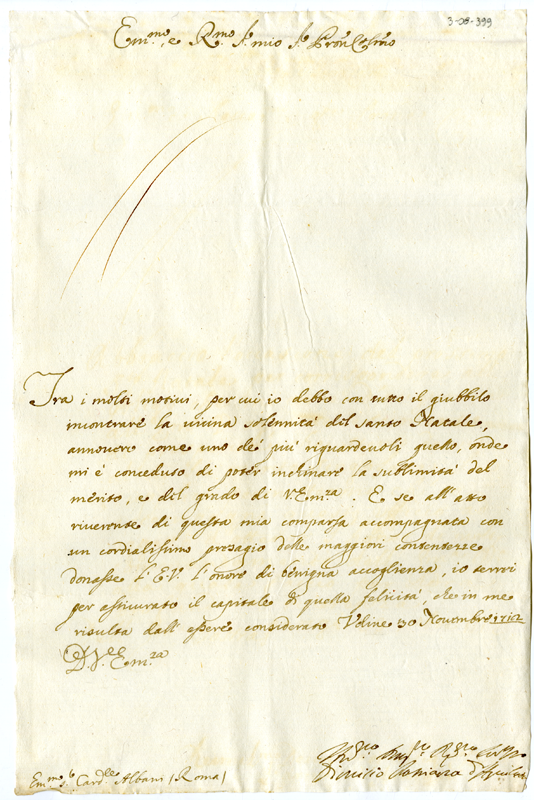 3-05-399
Em.mo e R.mo S.r mio S.r Pron Col.mo
Tra i molti motivi, per cui io debbo con tutto il giubbilo
incontrare la vicina solennità del santo Natale,
annovero come uno de' più riguardevoli quello, onde
mi è conceduto di poter inchinare la sublimità del
merito, e del grado di V. Em.za. E se all'atto
riverente di questa mia comparsa accompagnata con
un cordialissimo presagio delle maggiori contentezze
donasse l'E.V. l'onore di benigna accoglienza, io terrei
per assicurato il capitale di quella felicità, che in me
risulta dall'essere considerato Udine 30 Novembre 1712
D. V. Em.za
Em.mo S.r Card.le Albani (Roma)
Dionisio